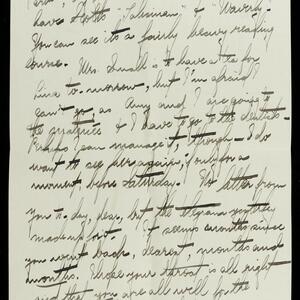 have Scott's "Talisman" & "Waverly".
You can see it's a fairly heavy reading
course. Mrs. Small is to have a tea for
to-morrow, but I'm afraid I
can't go as Amy and I are going to
the & I have to go to the dentist.
I can manage it, though. I do
want to see her again, if only for a
moment before Saturday. No letter from
you to-day, but the telegram yesterday
made up for it. It seems months since
you went back, dearest, months and
months. I hope your throat is all right
and that you are all well for the